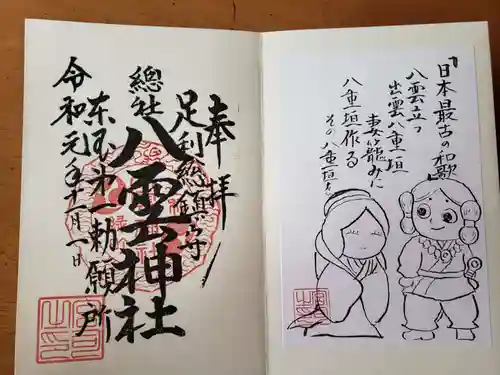 奉拝
足利総鎮守
總社
八雲神社
東国第一勅願所
令和元年十一月一日
『日本最古の和歌』
八雲立つ
出雲八重垣
妻籠みに
八重垣作る
その八重垣を